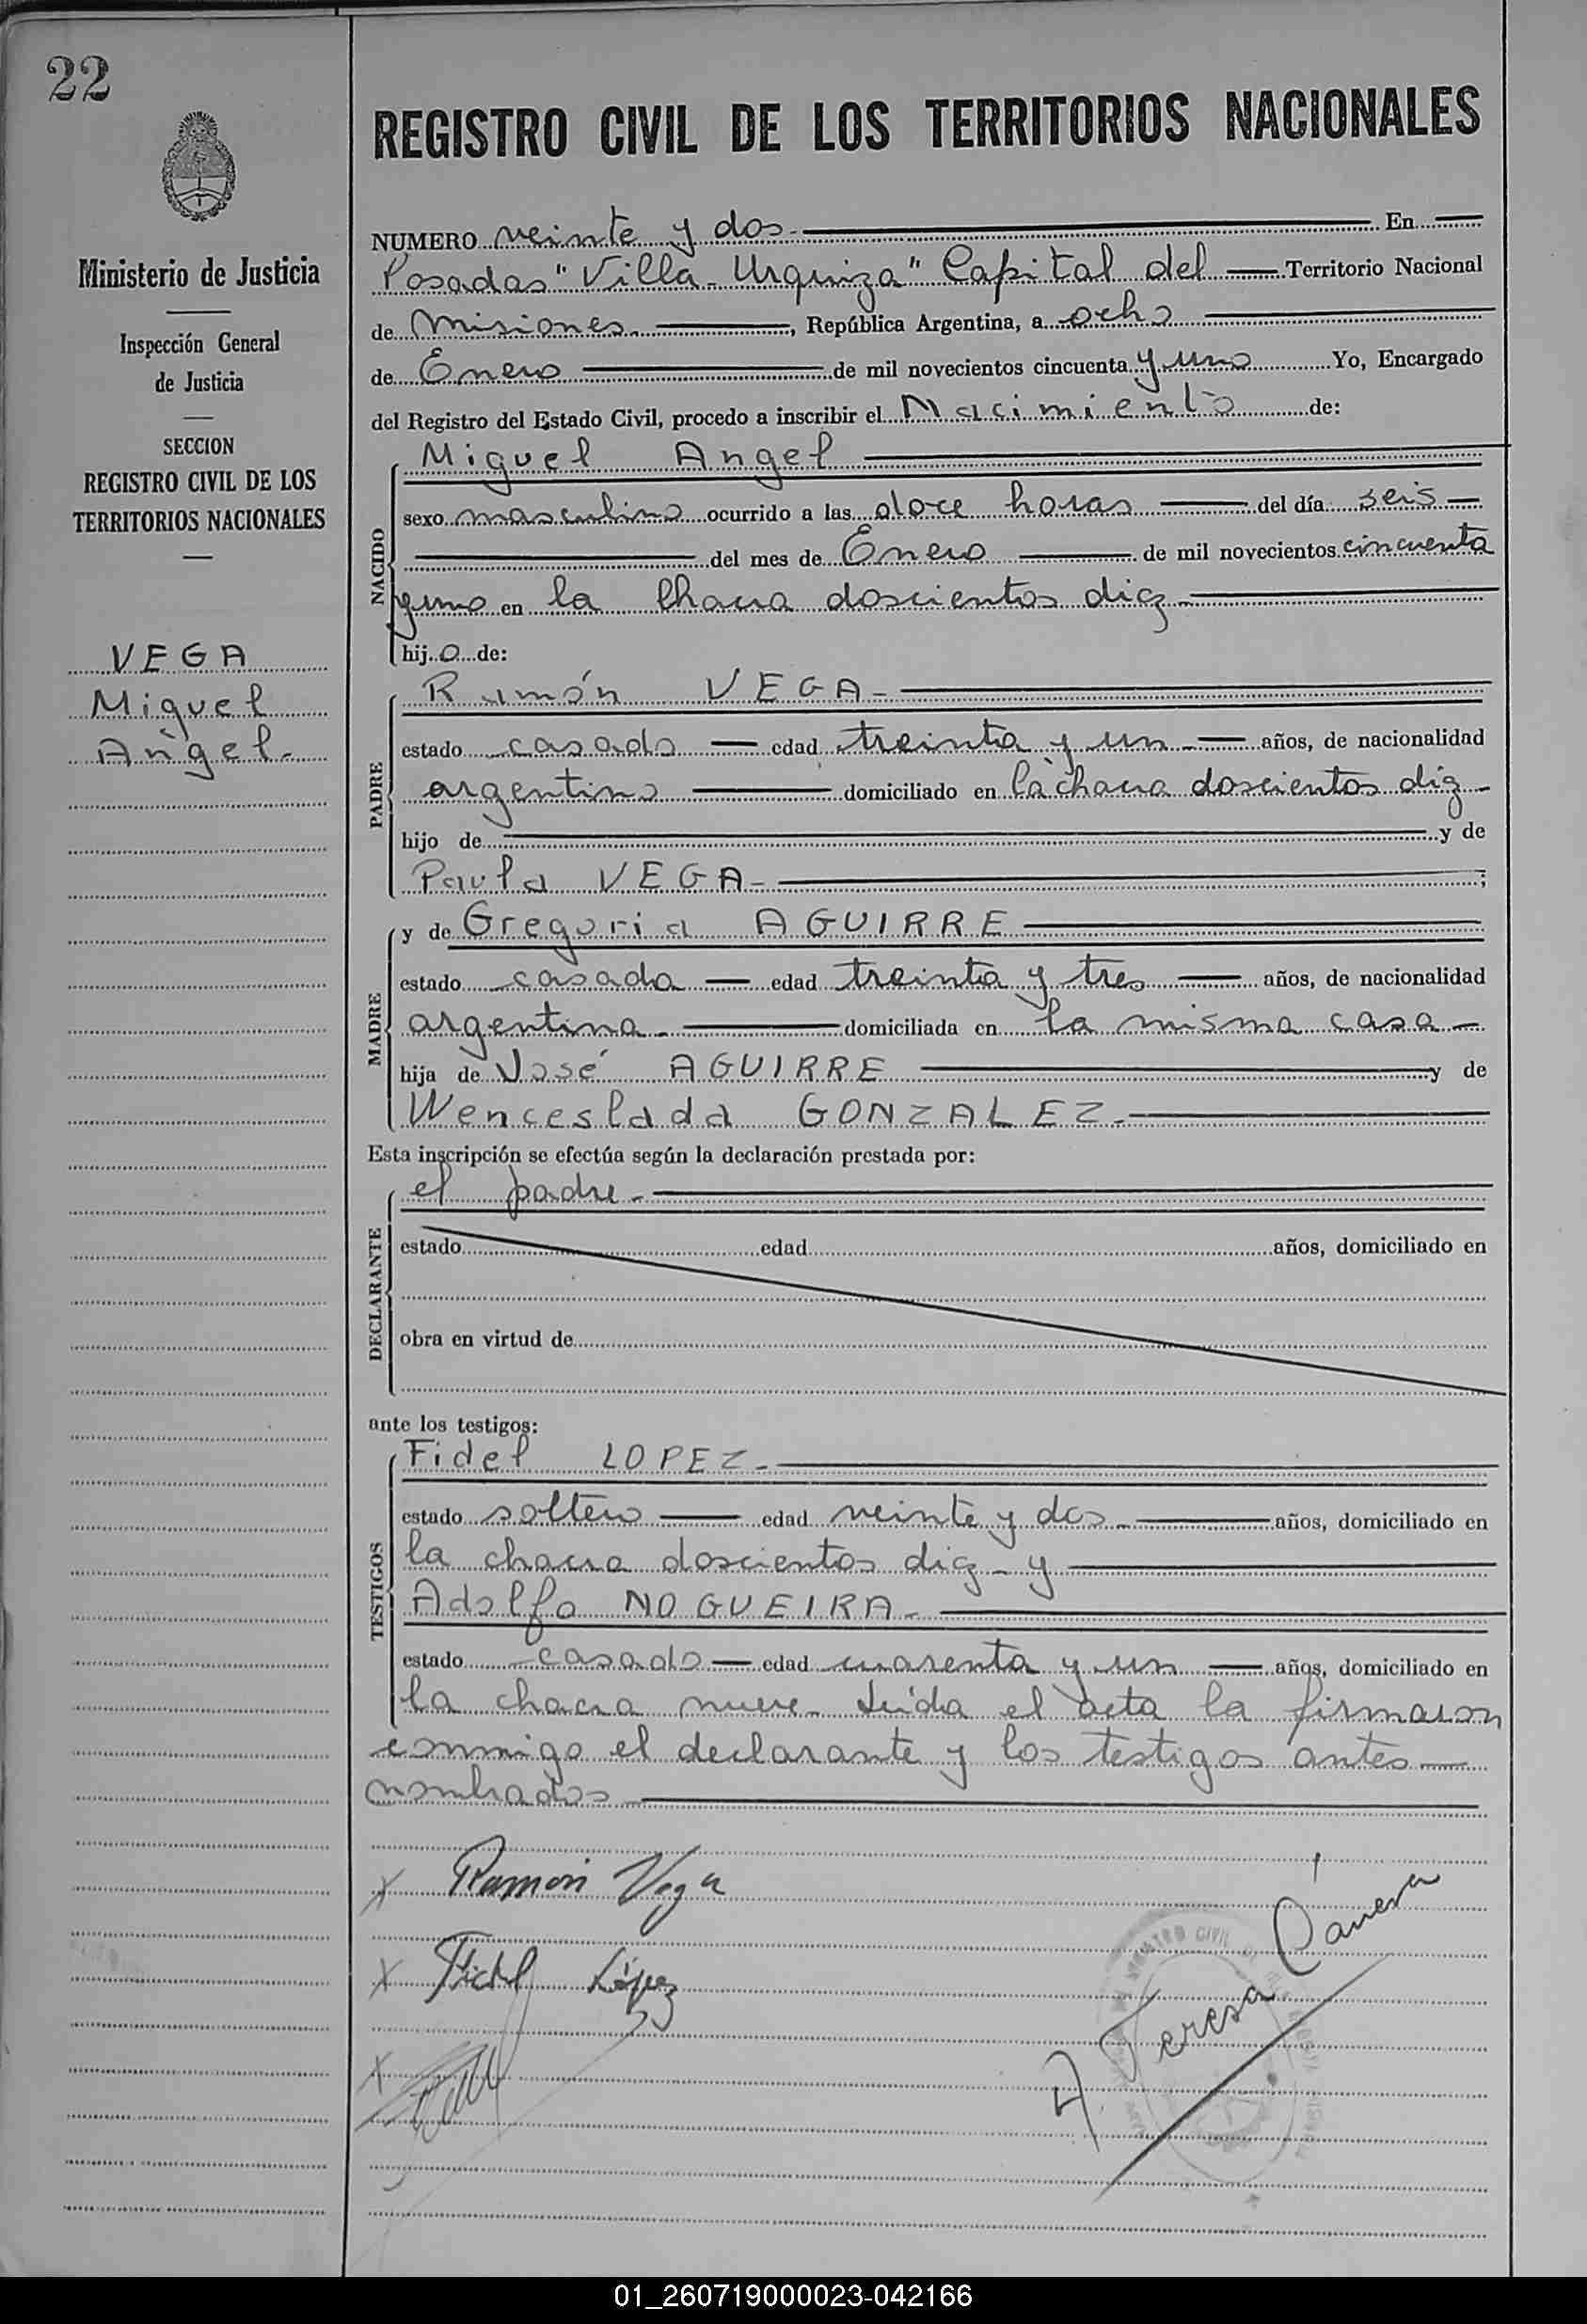 22
REGISTRO CIVIL DE LOS TERRITORIOS NACIONALES
Ministerio de Justicia
Inspección General
de Justicia
SECCION
REGISTRO CIVIL DE LOS
TERRITORIOS NACIONALES
VEGA
Miguel
Angel.-
NUMERO veinte y dos.- En
Posadas "Villa Urquiza" Capital del Territorio Nacional
de Misiones.- , República Argentina, a ocho
de Enero de mil novecientos cincuenta y uno Yo, Encargado
del Registro del Estado Civil, procedo a inscribir el Nacimiento de:
NACIDO
Miguel Angel
sexo masculino ocurrido a las doce horas del día seis
del mes de Enero de mil novecientos cincuenta
y uno en la Chacra doscientos diez.-
hij o de:
PADRE
Ramón VEGA.-
estado casado edad treinta y un.- años, de nacionalidad
argentino domiciliado en la chacra doscientos diez.-
hijo de y de
Paula VEGA.- ;
MADRE
y de Gregoria AGUIRRE
estado casada edad treinta y tres años, de nacionalidad
argentina.- domiciliada en la misma casa
hija de José AGUIRRE y de
Wenceslada GONZALEZ.-
Esta inscripción se efectúa según la declaración prestada por:
DECLARANTE
el padre.-
estado edad años, domiciliado en
obra en virtud de
ante los testigos:
TESTIGOS
Fidel LOPEZ.-
estado soltero edad veinte y dos.- años, domiciliado en
la chacra doscientos diez.- y
Adolfo NOGUEIRA.-
estado casado edad cuarenta y un años, domiciliado en
la chacra nueve.- Leída el acta la firmaron
conmigo el declarante y los testigos antes
nombrados
x Ramón Vega
x Fidel López
x
A. Teresa Cánesa
REGISTRO CIVIL
01_260719000023-042166